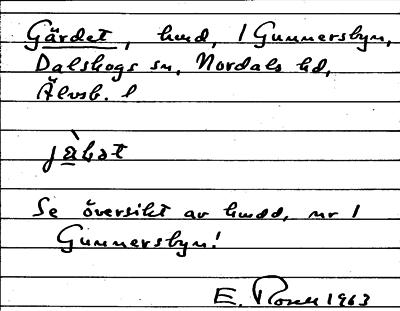 Gärdet, hmd, 1 Gunnersbyn,
Dalskogs sn, Nordals hd,
Älvsb. l
Se översikt av hmdd, nr 1
Gunnersbyn!
E. 1963